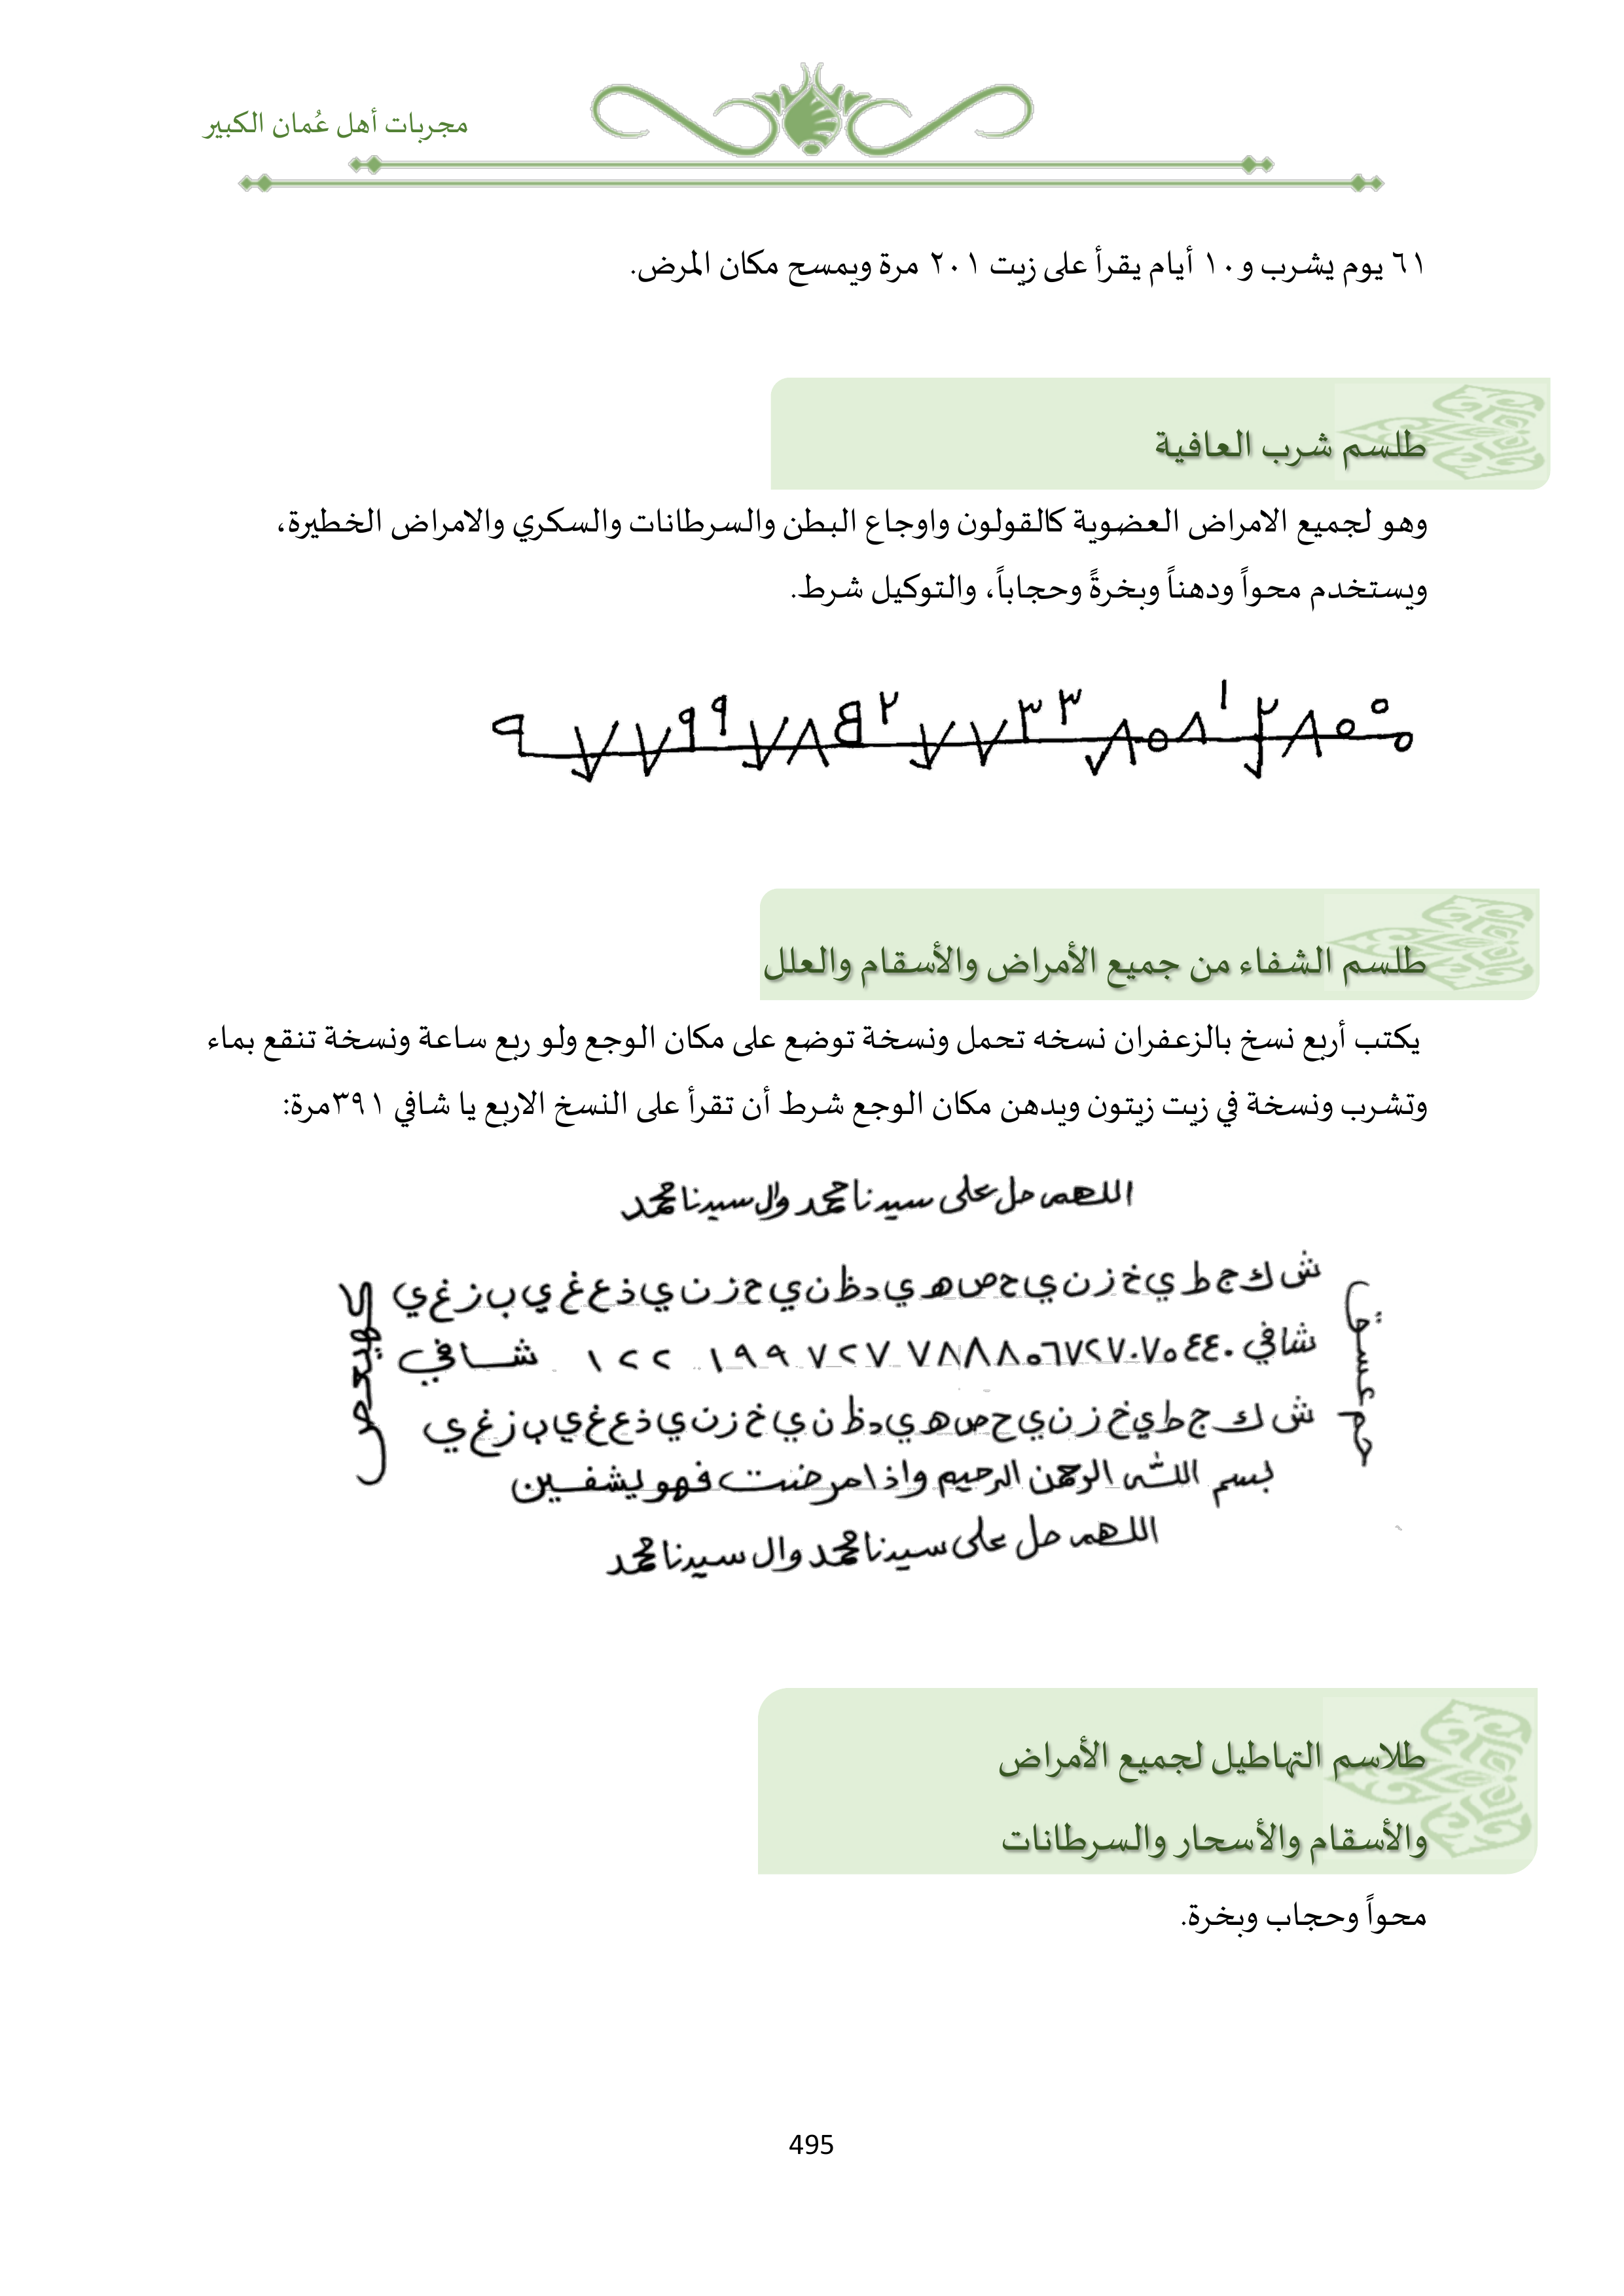 مجربات أهل عُمان الكبير
٦١ يوم يشرب و١٠ أيام يقرأ على زيت ٢٠١ مرة ويمسح مكان المرض.
طلسم شرب العافية
وهو لجميع الامراض العضوية كالقولون واوجاع البطن والسرطانات والسكري والامراض الخطيرة،
ويستخدم محواً ودهناً وبخرةً وحجاباً، والتوكيل شرط.
طلسم الشفاء من جميع الأمراض والأسقام والعلل
يكتب أربع نسخ بالزعفران نسخه تحمل ونسخة توضع على مكان الوجع ولو ربع ساعة ونسخة تنقع بماء
وتشرب ونسخة في زيت زيتون ويدهن مكان الوجع شرط أن تقرأ على النسخ الاربع يا شافي ٣٩١مرة:
اللهم صل على سيدنا محمد وال سيدنا محمد
حم عسق
ش ك ج ط ي خ ز ن ي ح ص ه ي د ظ ن ي ح ز ن ي ذ ع غ ي ب ز غ ي
شافي شافي
ش ك ج ط ي خ ز ن ي ح ص ه ي د ظ ن ي خ ز ن ي ذ ع غ ي ب ز غ ي
كهيعص
بسم الله الرحمن الرحيم واذا مرضت فهو يشفين
اللهم صل على سيدنا محمد وال سيدنا محمد
طلاسم التهاطيل لجميع الأمراض
والأسقام والأسحار والسرطانات
محواً وحجاب وبخرة.
495